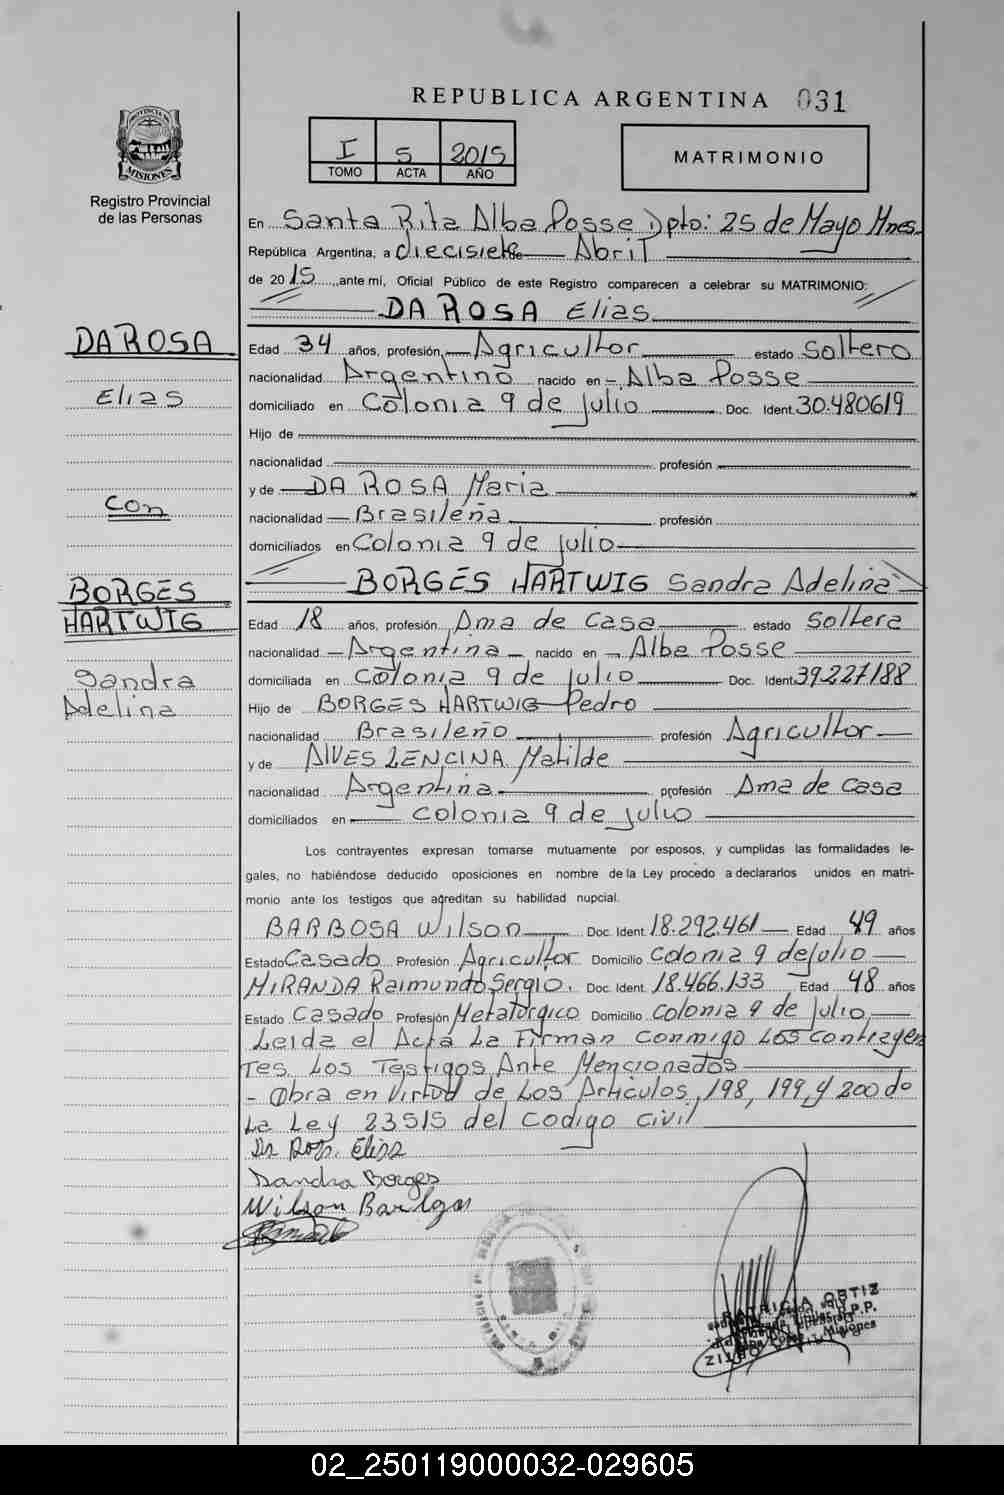 REPUBLICA ARGENTINA 031
PROVINCIA DE MISIONES
Registro Provincial
de las Personas
I 5 2015
TOMO ACTA AÑO
MATRIMONIO
En Santa Rita Alba Posse Dpto: 25 de Mayo Mnes.
República Argentina, a diecisiete Abril
de 2015, ante mi, Oficial Público de este Registro comparecen a celebrar su MATRIMONIO:
DA ROSA Elias
DA ROSA
Elias
Con
BORGES
HARTWIG
Sandra
Adelina
Edad 34 años, profesión Agricultor estado Soltero
nacionalidad Argentino nacido en Alba Posse
domiciliado en Colonia 9 de julio Doc. Ident. 30.480619
Hijo de
nacionalidad profesión
y de DA ROSA Maria
nacionalidad Brasileña profesión
domiciliados en Colonia 9 de julio
BORGES HARTWIG Sandra Adelina
Edad 18 años, profesión Ama de Casa estado Soltera
nacionalidad Argentina nacido en Alba Posse
domiciliada en Colonia 9 de julio Doc. Ident. 39.227.188
Hijo de BORGES HARTWIG Pedro
nacionalidad Brasileño profesión Agricultor
y de ALVES LENCINA Matilde
nacionalidad Argentina profesión Ama de casa
domiciliados en colonia 9 de julio
Los contrayentes expresan tomarse mutuamente por esposos, y cumplidas las formalidades le-
gales, no habiéndose deducido oposiciones en nombre de la Ley procedo a declararlos unidos en matri-
monio ante los testigos que acreditan su habilidad nupcial.
BARBOSA Wilson Doc. Ident. 18.292.461 Edad 49 años
Estado Casado Profesión Agricultor Domicilio Colonia 9 de Julio
MIRANDA Raimundo Sergio. Doc. Ident. 18.466.133 Edad 48 años
Estado Casado Profesión Metalúrgico Domicilio Colonia 9 de Julio
Leida el Acta La Firman conmigo Los Contrayen
Tes Los Testigos Ante Mencionados
- Obra en Virtud de Los Articulos, 198, 199, y 200 de
La Ley 23515 del Codigo Civil
Da Rosa. Elias
Sandra Borges
Wilson Barboza
PATRICIA ORTIZ
02_250119000032-029605